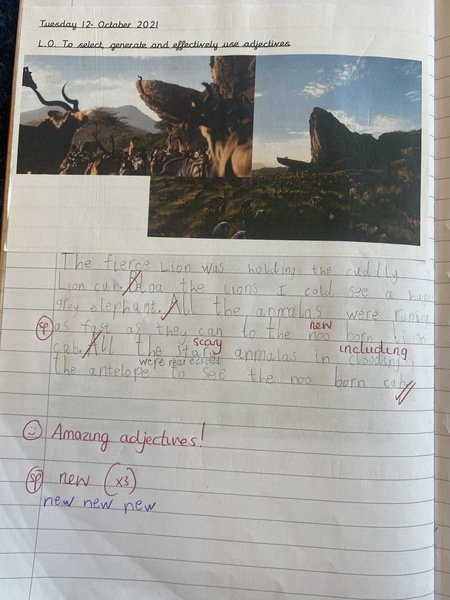 Tuesday 12. October 2021
L.O. To select, generate and effectively use adjectives
The fierce Lion was holding the cuddly
Lion cub. the Lions I cold see a huge
grey elephant. All the anmalas were runing
new
sp as fast as they can to the noo born Lion
scary including
cub. All the anmalas in clooding
were
the antelope to see the noo born cub.
Amazing adjectives!
sp new (x3)
new new new